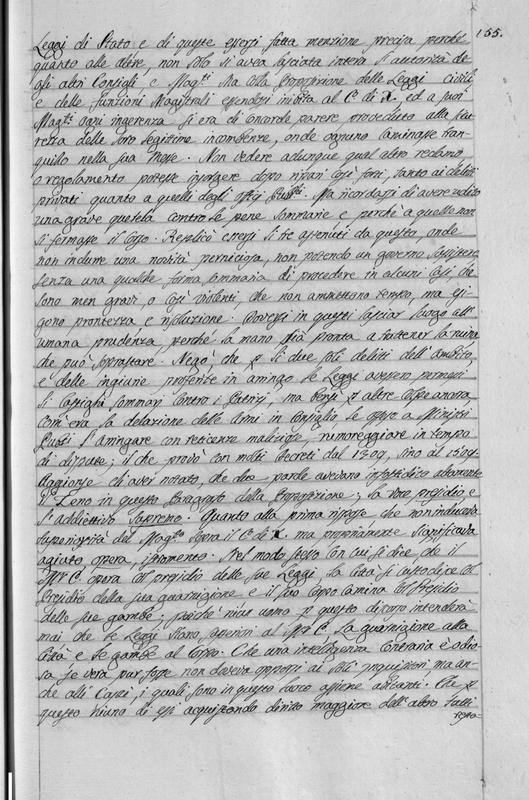 155.
Leggi di Stato e di queste essersi fatta menzione precisa perché
quanto alle altre, non solo si avea lasciata intera l'autorità de
gli altri Consigli e Mag.ti Ma colla Proposizione delle Leggi civili
e delle funzioni Magistrali essendosi inibita al C. di X. ed a suoi
Mag.ti ogni ingerenza si era di concorde parere proveduto alla sicu
rezza delle loro legitime incombenze, onde ognuno caminasse tran
quillo nella sua Messe. Non vedere adunque qual altro reclamo
o regolamento potesse insorgere dopo ripari così forti, tanto ai delitti
privati quanto a quelli degli offizj Pub.ci Ma ricordarsi di avere udito
una grave querela contro le pene sommarie e perchè a quelle non
si fermasse il corso. Replicò essersi li tre astenuti da questo, onde
non indurre una novità perniciosa, non potendo un governo sussistere
senza una qualche forma sommaria di procedere in alcuni casi che
sono men gravi o così violenti, che non ammettono tempo, ma esi
gono prontezza e risoluzione. Doversi in questi lasciar luogo all'
umana prudenza, perché la mano stia pronta a trattener la ruina
che può soprastare. Negò, che p li due soli delitti dell'ambito,
e delle ingiurie proferite in aringo le Leggi avessero permessi
li castighi sommarj contro i Patrizj, ma bensì p altre colpe ancora
com'era la delazione delle Armi in Consiglio le
 l'aringare con reticenze maliziose, rumoreggiare in tempo
di dispute; il che provò con molti Decreti dal 1309. sino al
Aggionse ch'avea notato, che due parole avevano infastidito altamente
il Zeno in questo Paragrafo della Proposizione; la voce presidio e
l'Addiettivo Supremo. Quanto alla prima rispose che non induceva
superiorità del Mag.to sopra il C. di X. ma propriamente significava
agiuto, opera, istromento. Nel modo stesso con cui si dice che il
M.r C. opera col presidio delle sue Leggi, la Città si custodisce col
Presidio della sua guarnigione e il suo Corpo camina col Presidio
delle sue gambe; perché niun uomo p questo discorso intenderà
mai che le Leggi siano superiori al M.r C. la guarnigione alla
Città e le gambe al Corpo. Che una intelligenza contraria è odio
sa se vera pur fosse non doveva opporsi ai soli Inquisitori ma an
che alli Capi, i quali sono in questo luogo assieme Che p
questo niuno di essi acquistando diritto maggiore dall'altro tutti
resta=